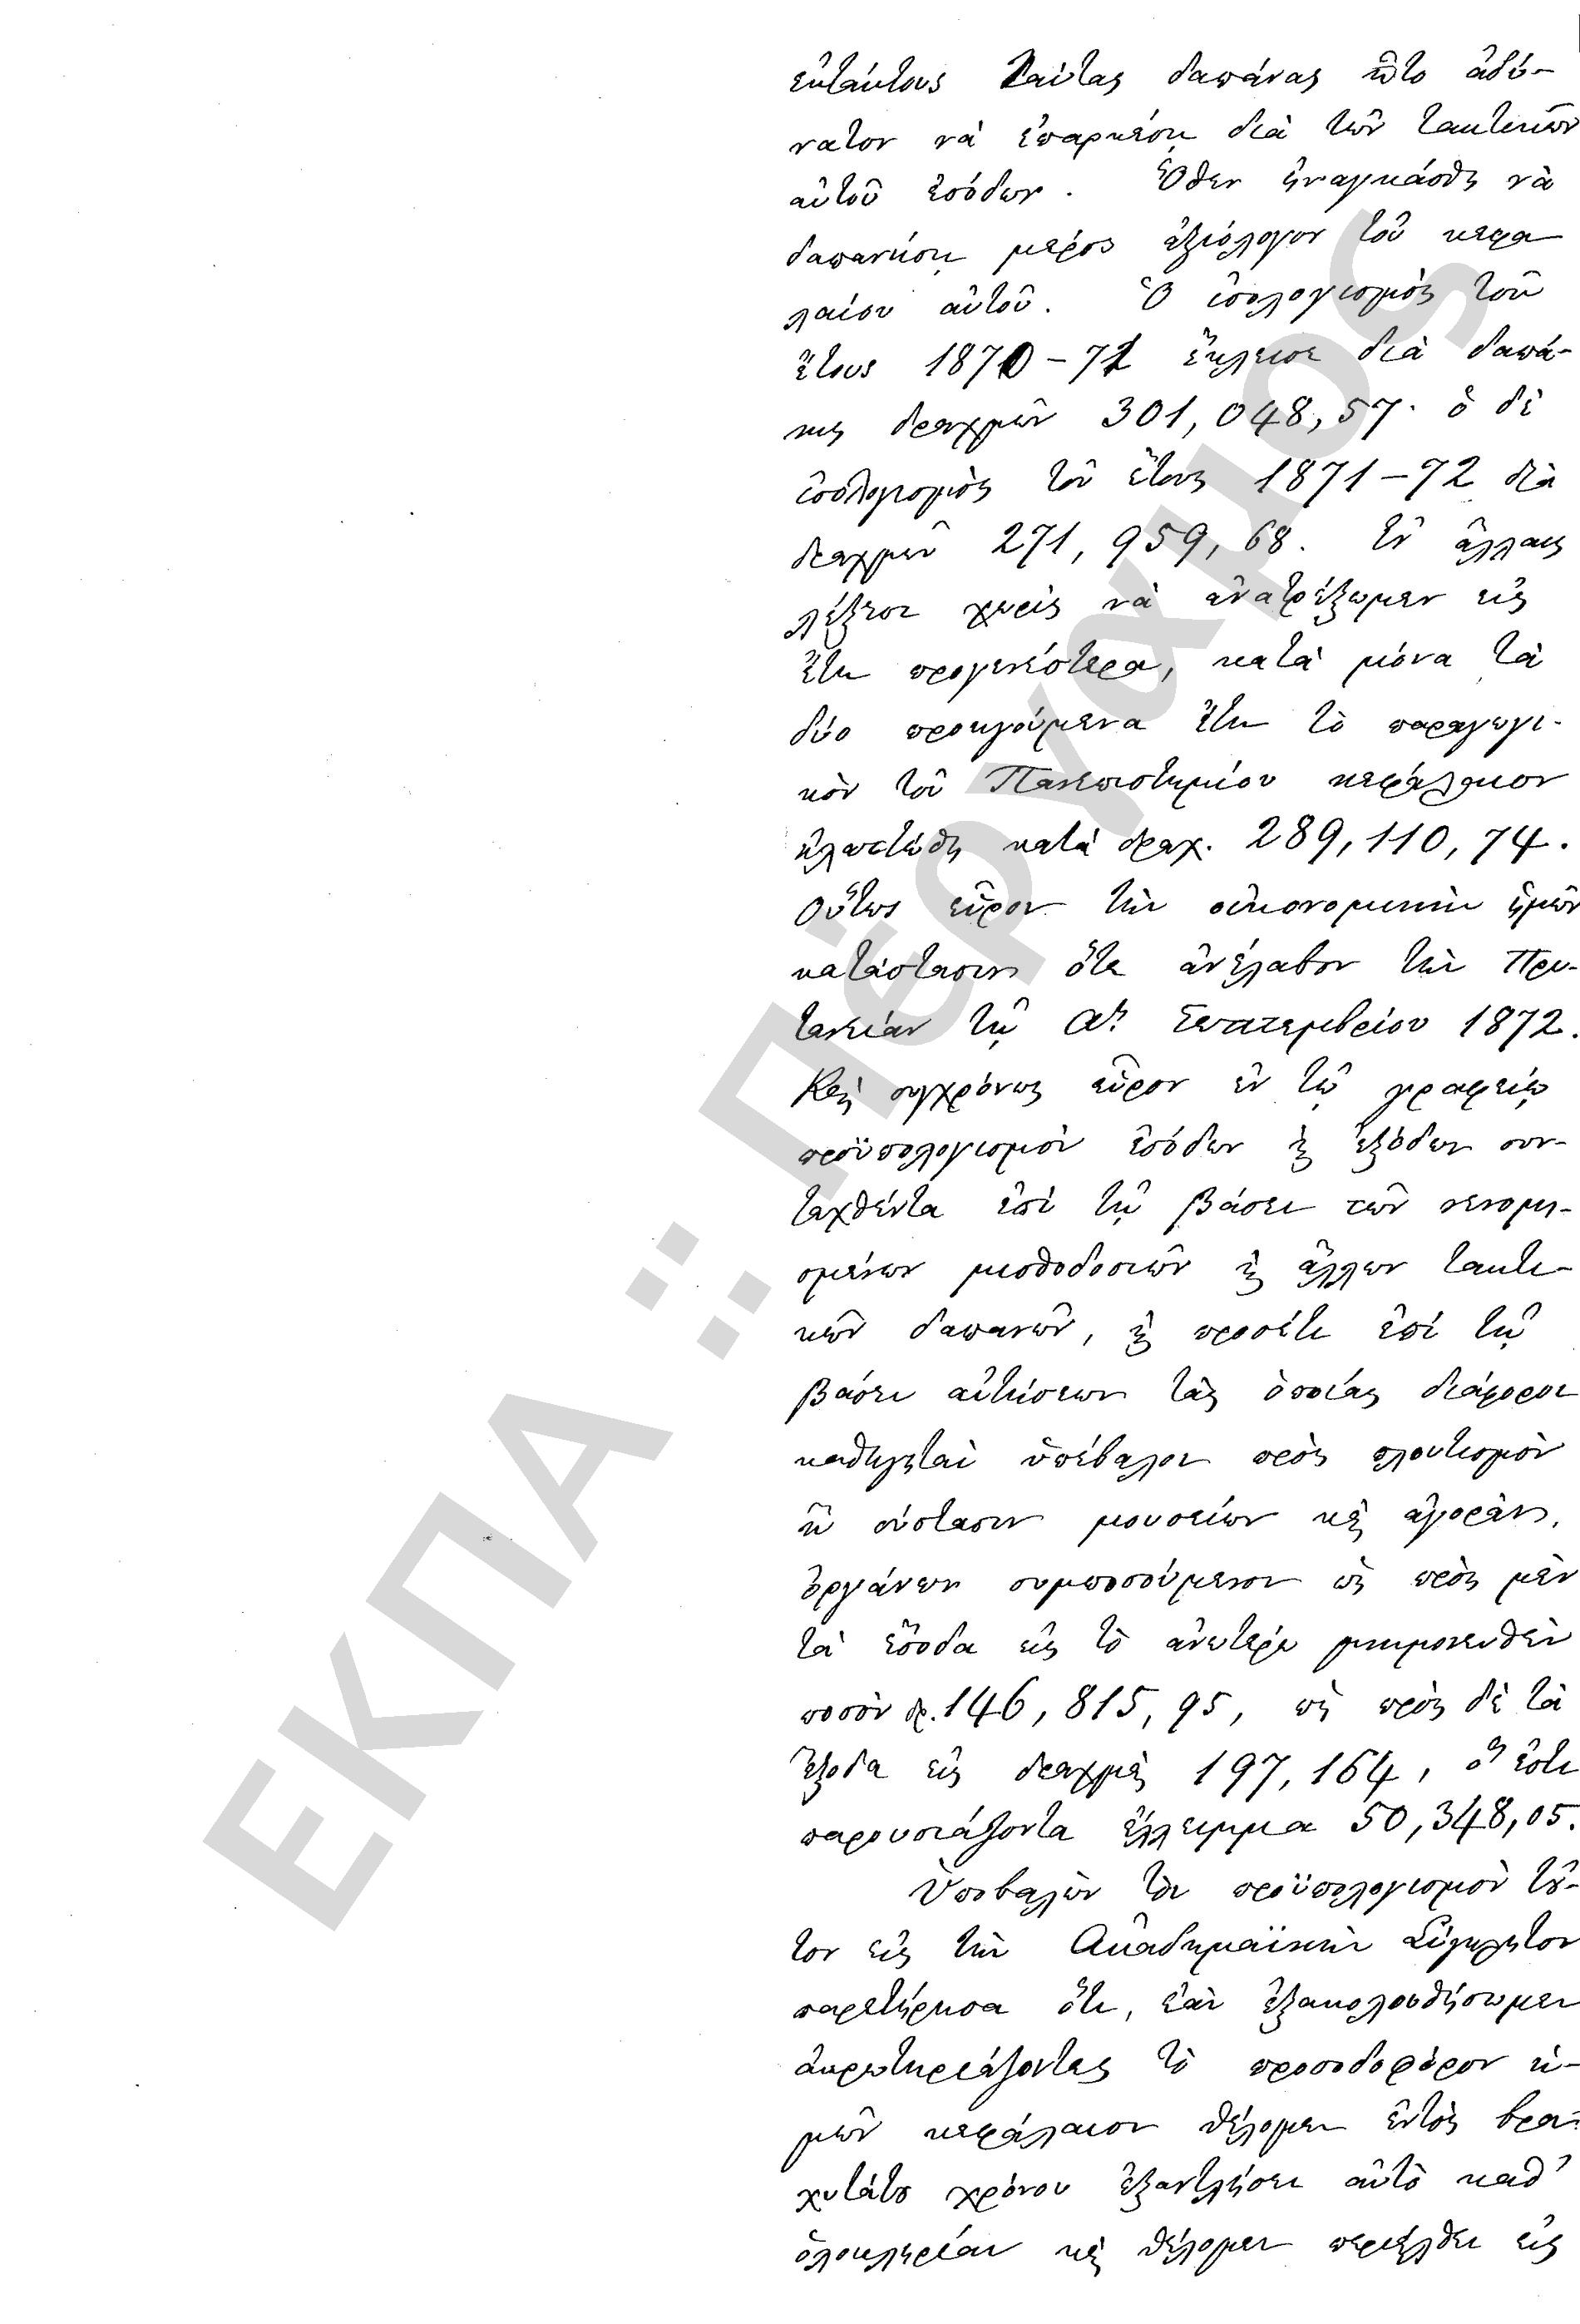 ἐκτάκτους ταύτας δαπάνας ἦτο ἀδύ-
νατον νὰ ἐπαρκέσῃ διὰ τῶν τακτικῶν
αὐτοῦ ἐσόδων. Ὅθεν ἠναγκάσθη νὰ
δαπανήσῃ μέρος ἀξιόλογον τοῦ κεφα
λαίου αὐτοῦ. Ὁ ἀπολογισμὸς τοῦ
ἔτους 1870-71 ἔκλεισε διὰ δαπά-
νης δραχμῶν 301,048,57· ὁ δὲ
ἀπολογισμὸς τοῦ ἔτους 1871-72 διὰ
δραχμῶν 271,959,68. Ἐν ἄλλαις
λέξεσι χωρὶς νὰ ἀνατρέξωμεν εἰς
ἔτη προγενέστερα, κατὰ μόνα τὰ
δύο προηγούμενα ἔτη τὸ παραγωγι-
κὸν τοῦ Πανεπιστημίου κεφάλαιον
ἠλαττώθη κατὰ δραχ. 289,110,74.
Οὕτως εὗρον τὴν οἰκονομικὴν ἡμῶν
κατάστασιν ὅτε ἀνέλαβον τὴν Πρυ-
τανείαν τῇ αῃ Σεπτεμβρίου 1872.
Καὶ συγχρόνως εὗρον ἐν τῷ γραφείῳ
προϋπολογισμὸν ἐσόδων ϗ ἐξόδων συν-
ταχθέντα ἐπὶ τῇ βάσει τῶν νενομι-
σμένων μισθοδοσιῶν ϗ ἄλλων τακτι-
κῶν δαπανῶν, ϗ προσέτι ἐπὶ τῇ
βάσει αἰτήσεων τὰς ὁποίας διάφοροι
καθηγηταὶ ὑπέβαλον πρὸς πλουτισμὸν
ἢ σύστασιν μουσείων καὶ ἀγορὰν
ὀργάνων συμποσούμενον ὡς πρὸς μὲν
τὰ ἔσοδα εἰς τὸ ἀνωτέρω μνημονευθὲν
ποσὸν δρ. 146,815,95, ὡς πρὸς δὲ τὰ
ἔξοδα εἰς δραχμὰς 197,164, ὅ ἐστι
παρουσιάζοντα ἔλλειμμα 50,348,05.
Ὑποβαλὼν τὸν προϋπολογισμὸν τοῦ-
τον εἰς τὴν Ἀκαδημαϊκὴν Σύγκλητον
παρετήρησα ὅτι, ἐὰν ἐξακολουθήσωμεν
ἀκρωτηριάζοντες τὸ προσοδοφόρον ἡ-
μῶν κεφάλαιον θέλομεν ἐντὸς βρα-
χυτάτου χρόνου ἐξαντλήσει αὐτὸ καθ'
ὁλοκληρίαν καὶ θέλομεν περιέλθει εἰς
ΕΚΠΑ :: Πέργαμος